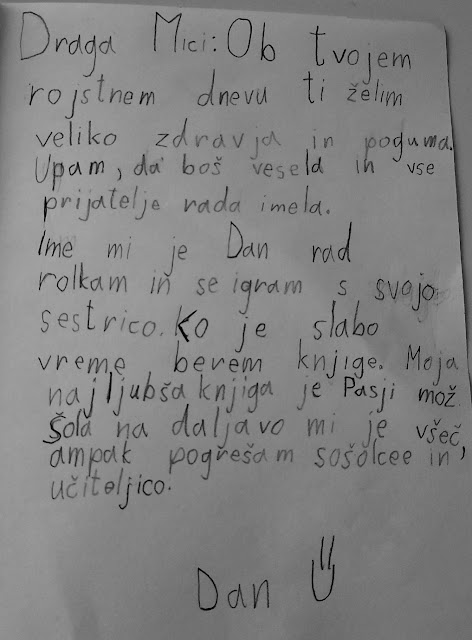 Draga Mici: Ob tvojem
rojstnem dnevu ti želim
veliko zdravja in poguma.
Upam, da boš vesela in vse
prijatelje rada imela.
Ime mi je Dan rad
rolkam in se igram s svojo
sestrico. Ko je slabo
vreme berem knjige. Moja
najljubša knjiga je Pasji mož
Šola na daljavo mi je všeč,
ampak pogrešam sošolcee in
učiteljico.
Dan